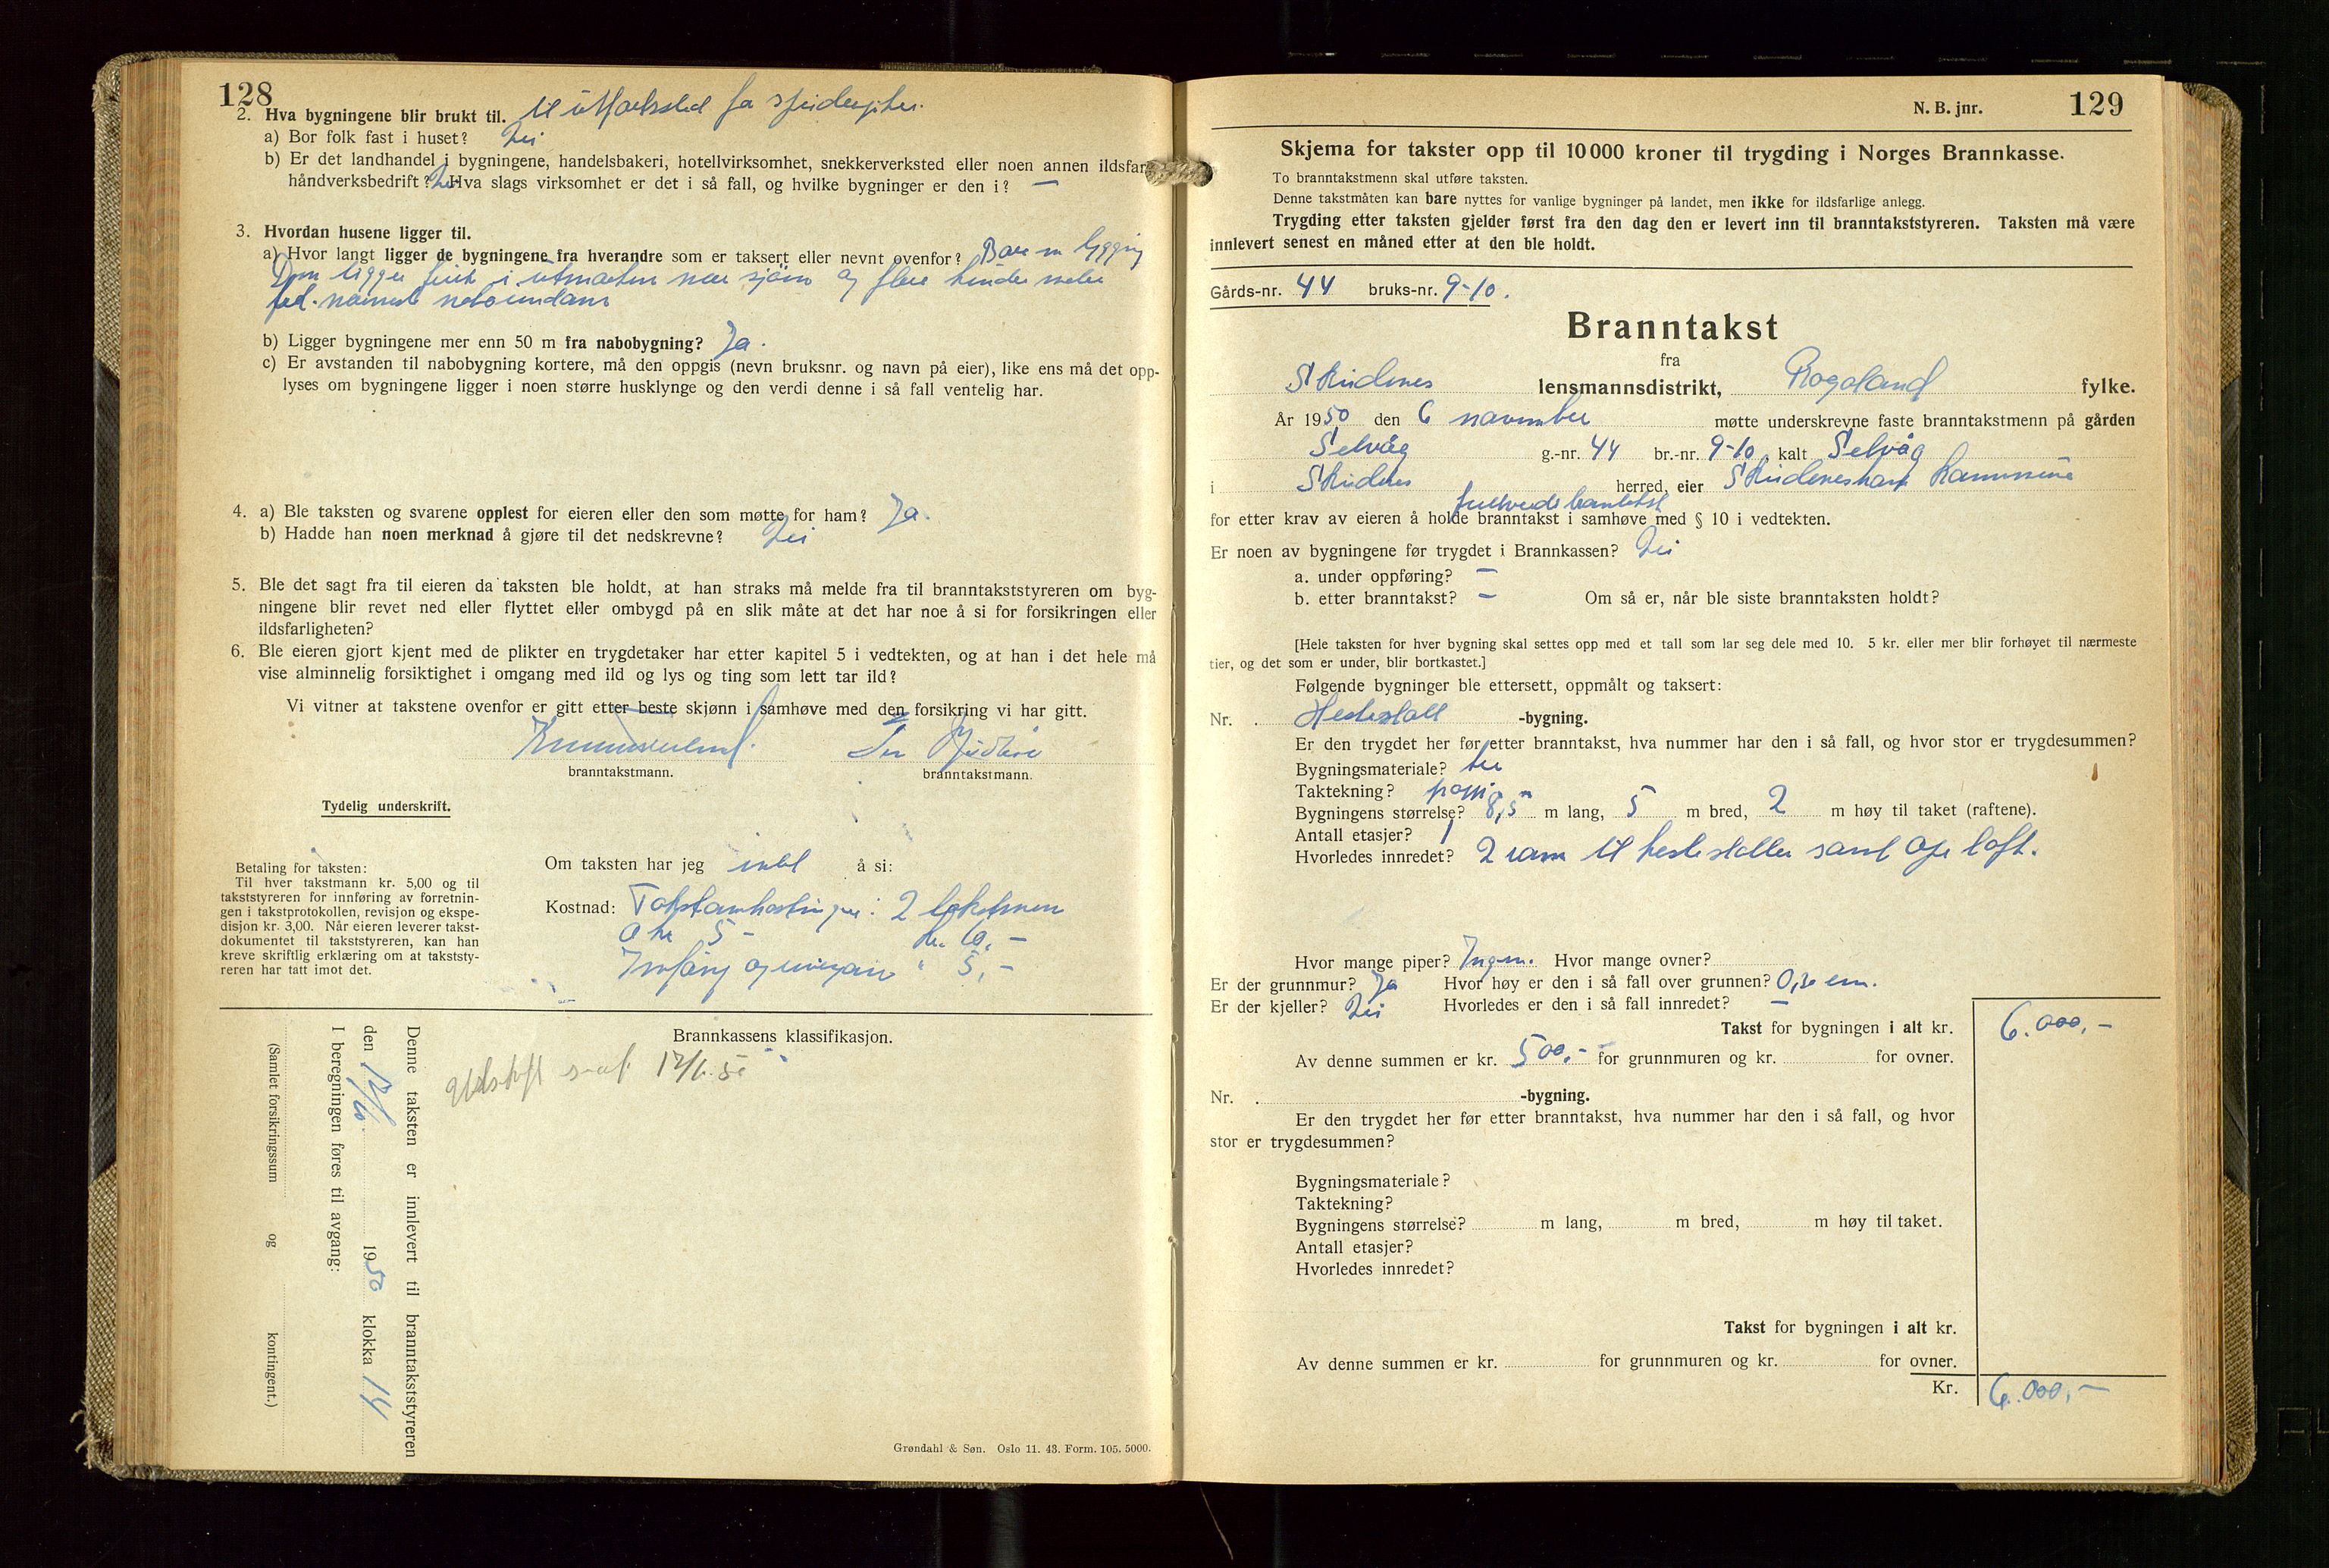 128
2. Hva bygningene blir brukt til. til utfartssted for speidergutter.
a) Bor folk fast i huset? Nei
b) Er det landhandel i bygningene, handelsbakeri, hotellvirksomhet, snekkerverksted eller noen annen ildsfar-
håndverksbedrift? Nei Hva slags virksomhet er det i så fall, og hvilke bygninger er den i? —
3. Hvordan husene ligger til.
a) Hvor langt ligger de bygningene fra hverandre som er taksert eller nevnt ovenfor? Bare en bygging
Den ligger fritt i utmarken nær sjøen og flere hundre meter
fra nærmeste
b) Ligger bygningene mer enn 50 m fra nabobygning? Ja.
c) Er avstanden til nabobygning kortere, må den oppgis (nevn bruksnr. og navn på eier), like ens må det opp-
lyses om bygningene ligger i noen større husklynge og den verdi denne i så fall ventelig har.
4. a) Ble taksten og svarene opplest for eieren eller den som møtte for ham? Ja.
b) Hadde han noen merknad å gjøre til det nedskrevne? Nei
5. Ble det sagt fra til eieren da taksten ble holdt, at han straks må melde fra til branntakststyreren om byg-
ningene blir revet ned eller flyttet eller ombygd på en slik måte at det har noe å si for forsikringen eller
ildsfarligheten?
6. Ble eieren gjort kjent med de plikter en trygdetaker har etter kapitel 5 i vedtekten, og at han i det hele må
vise alminnelig forsiktighet i omgang med ild og lys og ting som lett tar ild?
Vi vitner at takstene ovenfor er gitt etter beste skjønn i samhøve med den forsikring vi har gitt.
branntakstmann. branntakstmann.
Tydelig underskrift.
Betaling for taksten:
Til hver takstmann kr. 5,00 og til
takststyreren for innføring av forretnin-
gen i takstprotokollen, revisjon og ekspe-
disjon kr. 3,00. Når eieren leverer takst-
dokumentet til takststyreren, kan han
kreve skriftlig erklæring om at takststy-
reren har tatt imot det.
Om taksten har jeg intet å si:
Kostnad: Takstomkostninger: 2 takstmen
a kr 5 - kr. 10,-
" 5,-
Denne taksten er innlevert til branntakststyreren
den 12/10 1950 klokka 14
I beregningen føres til avgang:
(Samlet forsikringssum og kontingent.)
Brannkassens klassifikasjon.
Grøndahl & Søn. Oslo 11. 43. Form. 105. 5000.
N. B. jnr. 129
Skjema for takster opp til 10 000 kroner til trygding i Norges Brannkasse.
To branntakstmenn skal utføre taksten.
Denne takstmåten kan bare nyttes for vanlige bygninger på landet, men ikke for ildsfarlige anlegg.
Trygding etter taksten gjelder først fra den dag den er levert inn til branntakststyreren. Taksten må være
innlevert senest en måned etter at den ble holdt.
Gårds-nr. 44 bruks-nr. 9-10.
Branntakst
fra
Skudenes lensmannsdistrikt, Rogaland fylke.
År 1950 den 6 november møtte underskrevne faste branntakstmenn på gården
Selvåg g.-nr. 44 br.-nr. 9-10, kalt Selvåg
i Skudenes herred, eier Skudeneshavn Kommune
fullverdi branntakst
for etter krav av eieren å holde branntakst i samhøve med § 10 i vedtekten.
Er noen av bygningene før trygdet i Brannkassen? Nei
a. under oppføring? —
b. etter branntakst? — Om så er, når ble siste branntaksten holdt?
[Hele taksten for hver bygning skal settes opp med et tall som lar seg dele med 10. 5 kr. eller mer blir forhøyet til nærmeste
tier, og det som er under, blir bortkastet.]
Følgende bygninger ble ettersett, oppmålt og taksert:
Nr. . Hestestall -bygning.
Er den trygdet her før etter branntakst, hva nummer har den i så fall, og hvor stor er trygdesummen?
Bygningsmateriale? tre
Taktekning? papp
Bygningens størrelse? 8,5 m lang, 5 m bred, 2 m høy til taket (raftene).
Antall etasjer? 1
Hvorledes innredet? 2 rom til hestestaller samt ope loft.
Hvor mange piper? Ingen. Hvor mange ovner?
Er der grunnmur? Ja Hvor høy er den i så fall over grunnen? 0,30 cm.
Er der kjeller? Nei Hvorledes er den i så fall innredet? —
Takst for bygningen i alt kr. 6.000,-
Av denne summen er kr. 500,- for grunnmuren og kr. for ovner.
Nr. . -bygning.
Er den trygdet her før etter branntakst, hva nummer har den i så fall, og hvor
stor er trygdesummen?
Bygningsmateriale?
Taktekning?
Bygningens størrelse? m lang, m bred, m høy til taket.
Antall etasjer?
Hvorledes innredet?
Takst for bygningen i alt kr.
Av denne summen er kr. for grunnmuren og kr. for ovner.
Kr. 6.000,-